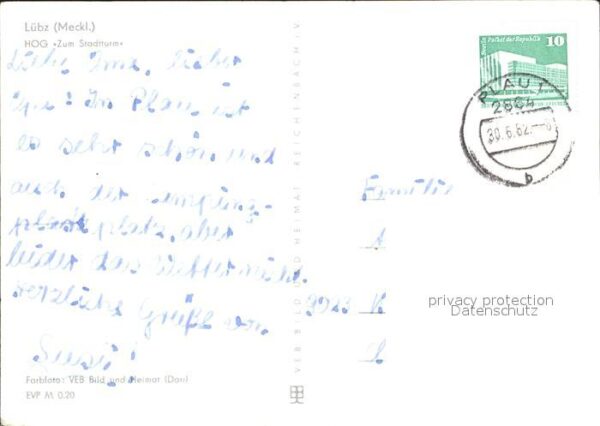 Lübz (Meckl.)
HOG »Zum Stadtturm«
Liebe Ima, lieber
Opa! In Plau ist
es sehr schön und
auch der Camping-
platz, aber
leider das Wetter nicht.
Herzliche Grüße von
Susi!
Farbfoto: VEB Bild und Heimat (Dau)
EVP M 0.20
VEB BILD UND HEIMAT REICHENBACH i.V.
Berlin Palast der Republik
10
PLAU 1
2864
30.6.82.-8
b
Familie
A
9923 K
privacy protection
Datenschutz